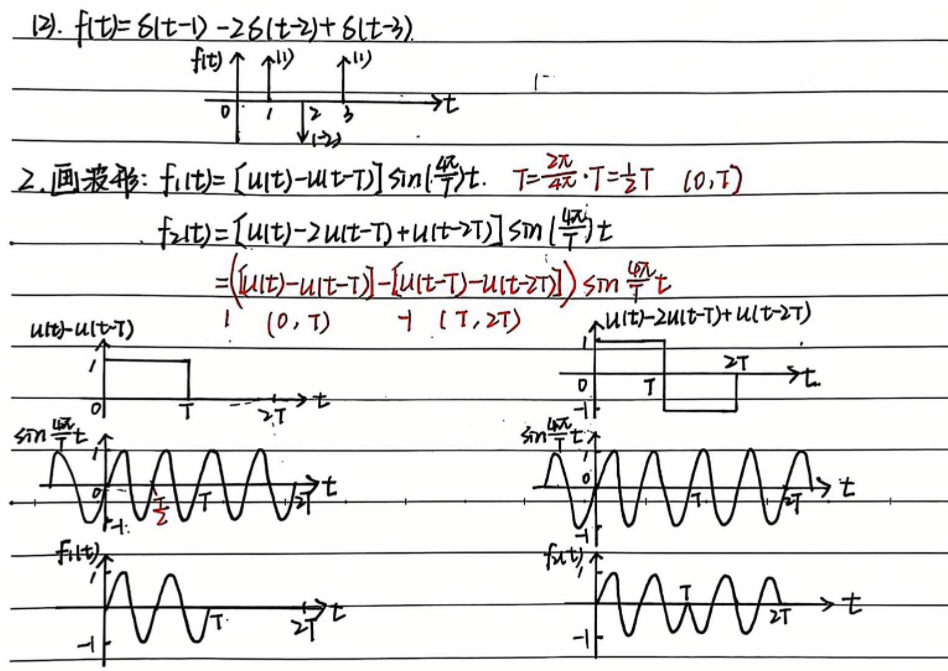 (2). f(t)=δ(t-1)-2δ(t-2)+δ(t-3)
f(t) (1) (1)
0 1 2 3 t
(-2)
2.画波形: f₁(t)=[u(t)-u(t-T)]sin(4π/T)t. T=2π/4π·T=1/2T (0,T)
f₂(t)=[u(t)-2u(t-T)+u(t-2T)]sin(4π/T)t
=([u(t)-u(t-T)]-[u(t-T)-u(t-2T)])sin 4π/T t
1 (0,T) -1 (T,2T)
u(t)-u(t-T)
1
0 T 2T t
u(t)-2u(t-T)+u(t-2T)
1
0 T 2T t
-1
sin 4π/T t
1
0 T/2 T 2T t
-1
sin 4π/T t
1
0 T 2T t
-1
f₁(t)
1
T 2T t
-1
f₂(t)
1
T 2T t
-1